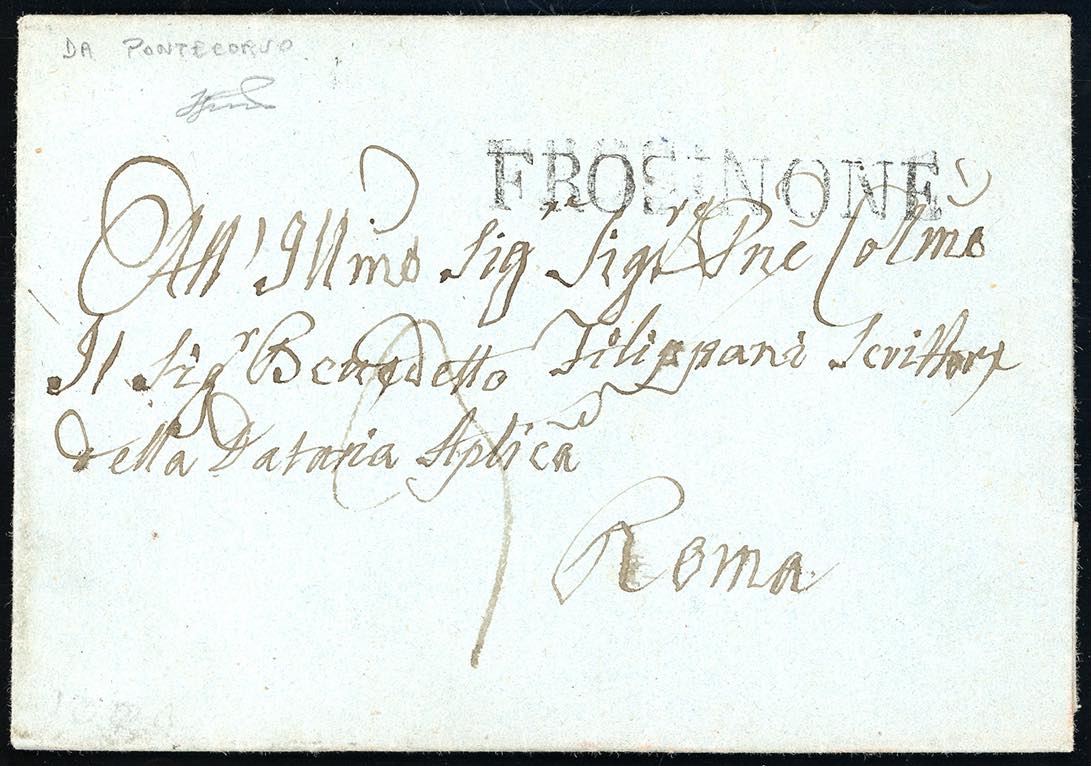 DA PONTECORVO
FROSINONE
All' Illmo Sig Sigre Pne Colmo
Il Sigr Benedetto Filippani Scrittore
della Dataria Aplica
Roma